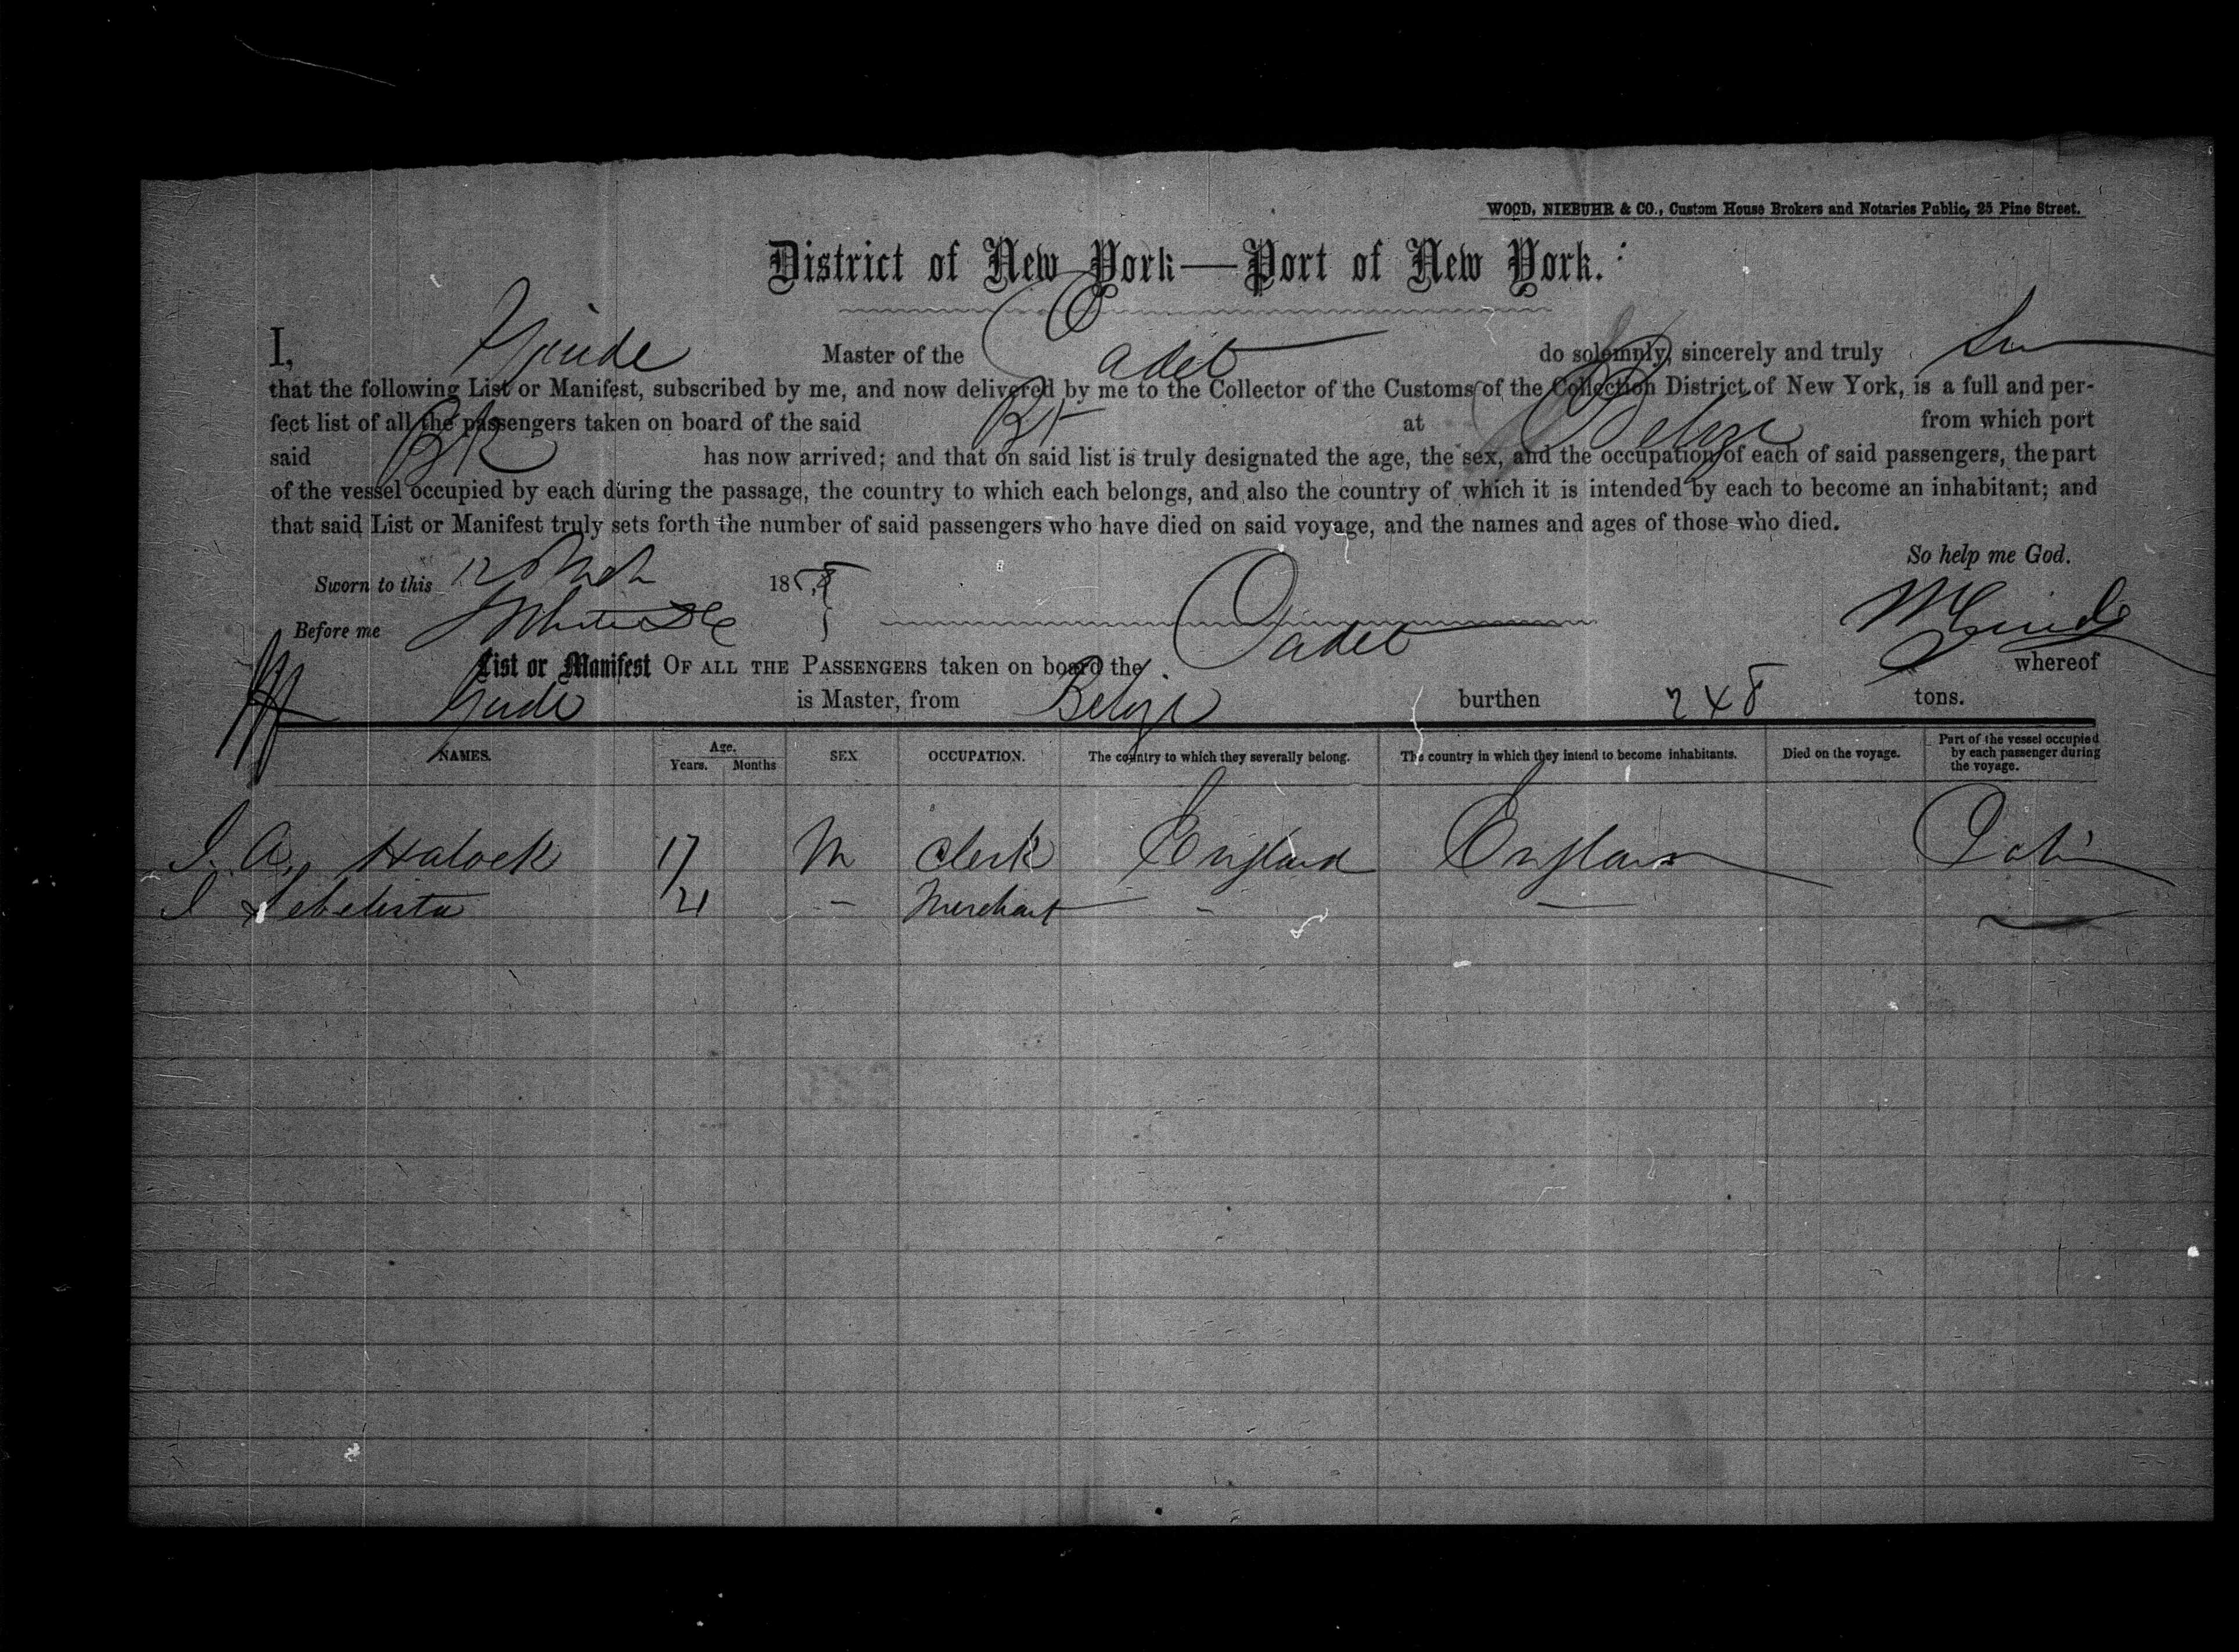 WOOD, NIEBUHR & CO., Custom House Brokers and Notaries Public, 25 Pine Street.
District of New York—Port of New York.
I, Master of the Cadet do solemnly, sincerely and truly
that the following List or Manifest, subscribed by me, and now delivered by me to the Collector of the Customs of the Collection District of New York, is a full and per-
fect list of all the passengers taken on board of the said at Belize from which port
said has now arrived; and that on said list is truly designated the age, the sex, and the occupation of each of said passengers, the part
of the vessel occupied by each during the passage, the country to which each belongs, and also the country of which it is intended by each to become an inhabitant; and
that said List or Manifest truly sets forth the number of said passengers who have died on said voyage, and the names and ages of those who died.
So help me God.
Sworn to this 12 18
Before me
List or Manifest OF ALL THE PASSENGERS taken on board the Cadet whereof
is Master, from Belize burthen 248 tons.
NAMES. Age. Years. Months SEX OCCUPATION. The country to which they severally belong. The country in which they intend to become inhabitants. Died on the voyage. Part of the vessel occupied by each passenger during the voyage.
A. Halock 17 M Clerk England England Cabin
21 - Merchant - —